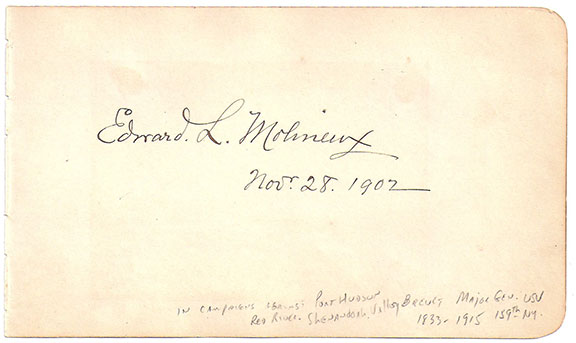 Edward. L. Molineux
Nov.r 28. 1902
IN CAMPAIGNS AGAINST PORT HUDSON
RED RIVER. SHENANDOAH. Valley BREVET MAJOR GEN. USV
1833 - 1915 159th NY.